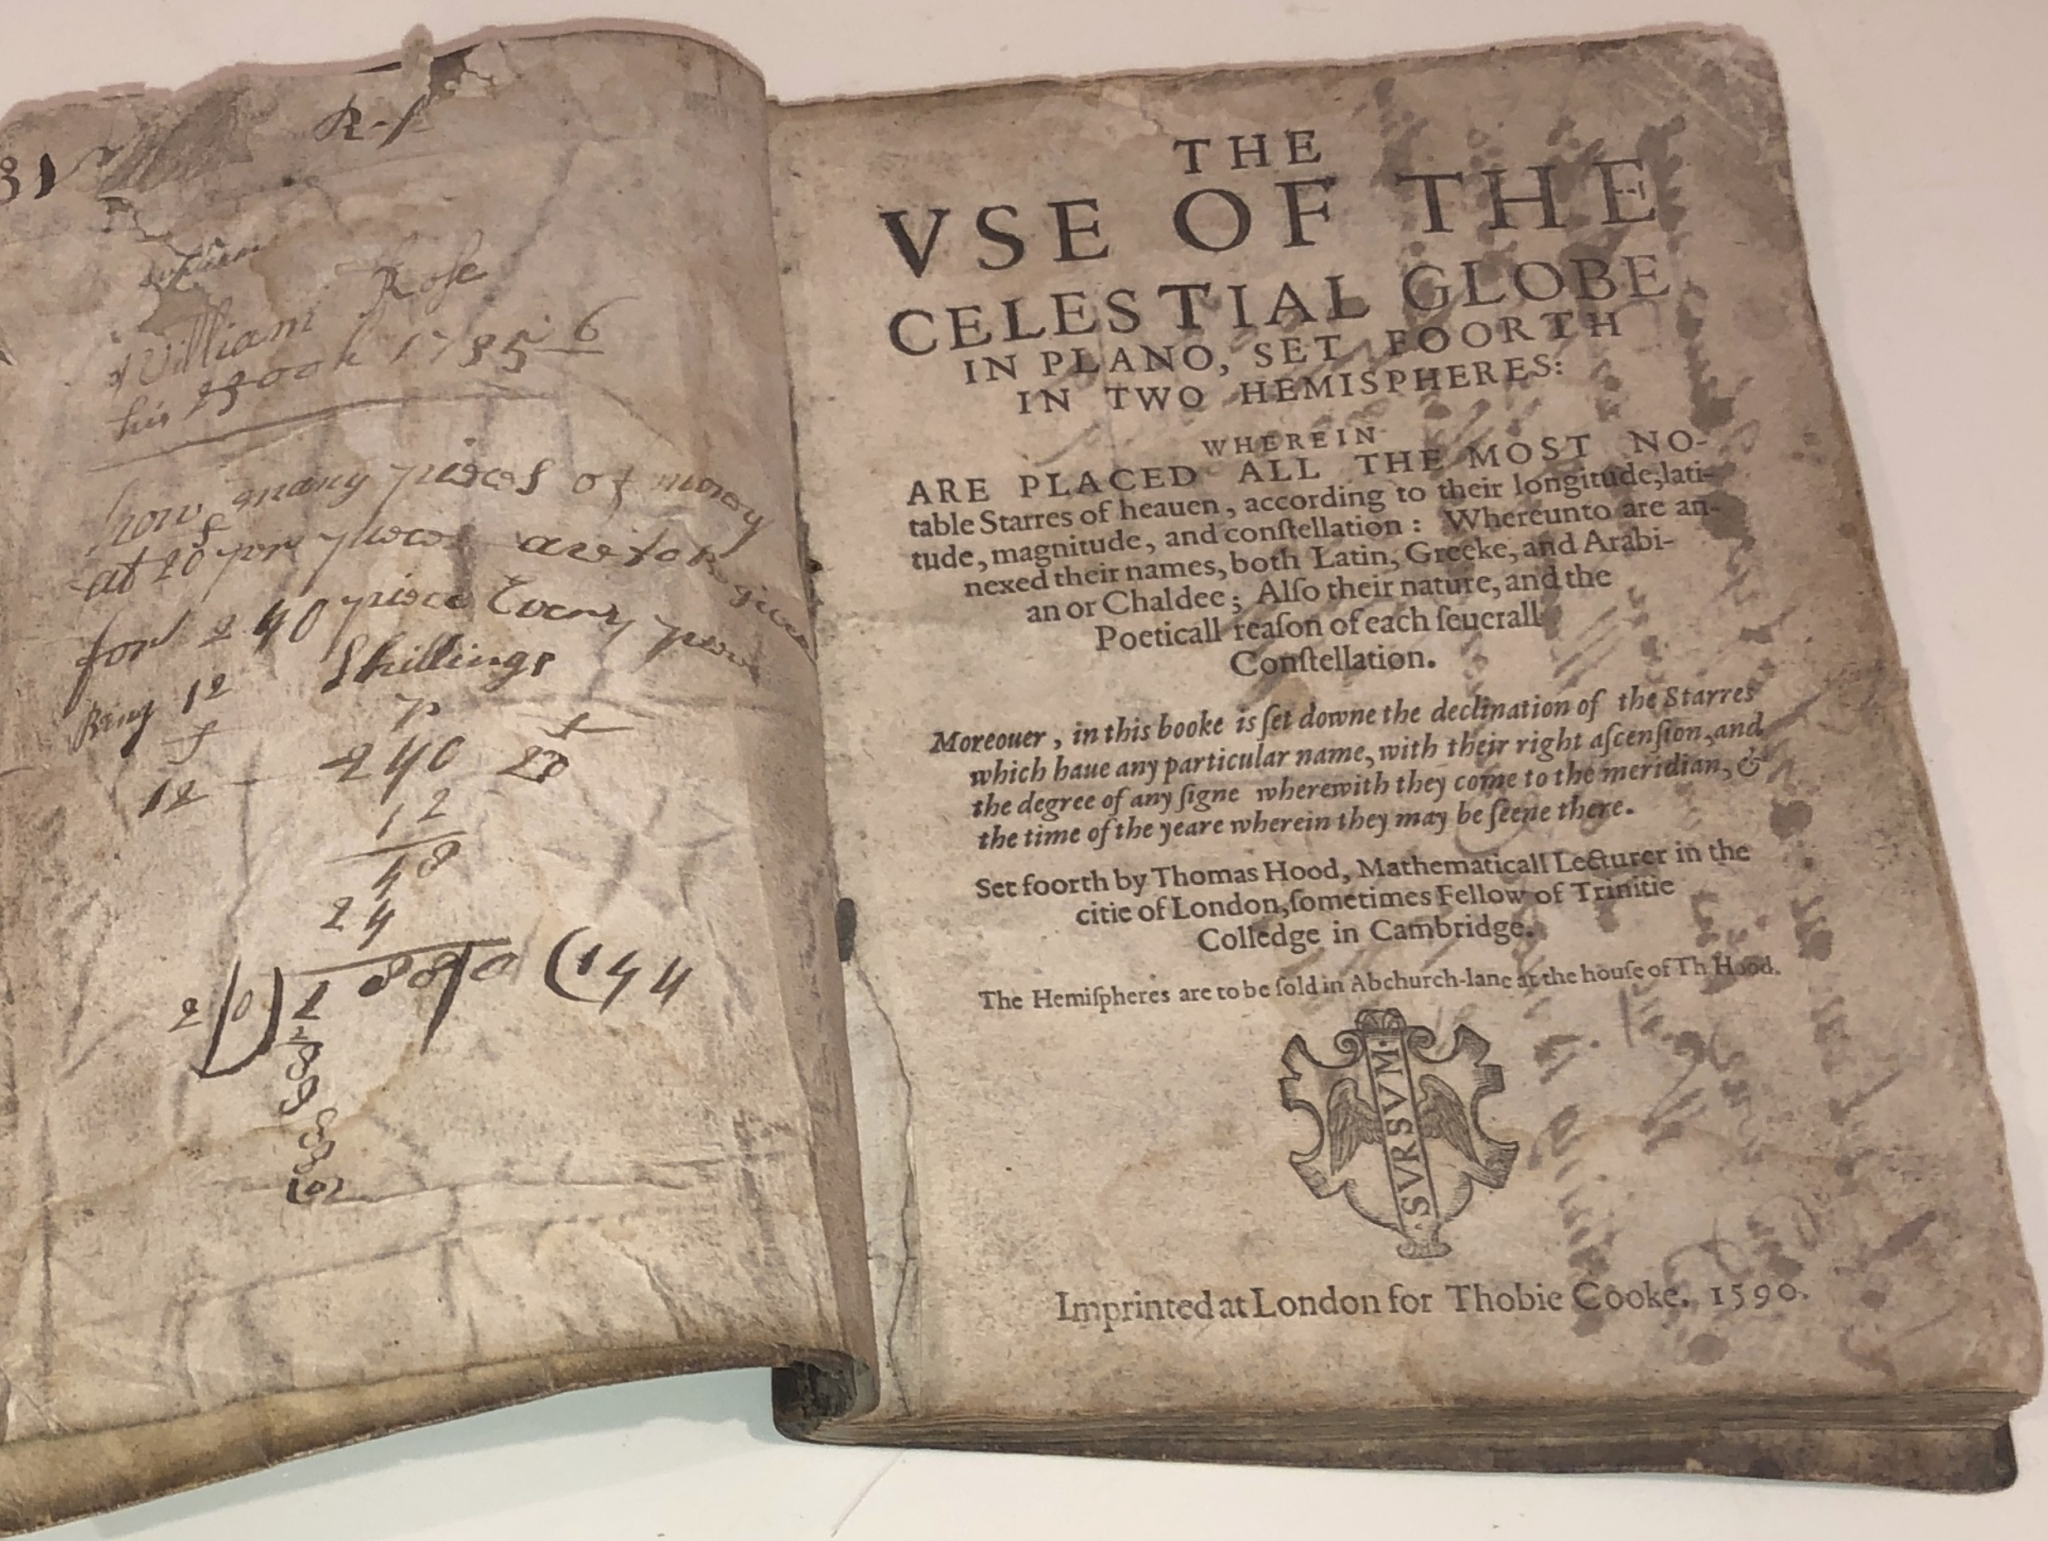 R-f
31
William Rose
his Book 1735 6
how many pieces of money
at 20s per piece are to be given
for 240 piece Every piece
Bing 12 Shillings
s p s
12 240 20
12
48
24
2|0) 288|0 (144
2
8
8
8
8
(0)
THE
VSE OF THE
CELESTIAL GLOBE
IN PLANO, SET FOORTH
IN TWO HEMISPHERES:
WHEREIN
ARE PLACED ALL THE MOST NO-
table Starres of heauen, according to their longitude, lati-
tude, magnitude, and conſtellation: Whereunto are an-
nexed their names, both Latin, Greeke, and Arabi-
an or Chaldee; Alſo their nature, and the
Poeticall reaſon of each ſeuerall
Conſtellation.
Moreouer, in this booke is ſet downe the declination of the Starres
which haue any particular name, with their right aſcenſion, and
the degree of any ſigne wherewith they come to the meridian, &
the time of the yeare wherein they may be ſeene there.
Set foorth by Thomas Hood, Mathematicall Lecturer in the
citie of London, ſometimes Fellow of Trinitie
Colledge in Cambridge.
The Hemiſpheres are to be ſold in Abchurch-lane at the houſe of Th. Hood.
·SVRSVM·
Imprinted at London for Thobie Cooke. 1590.